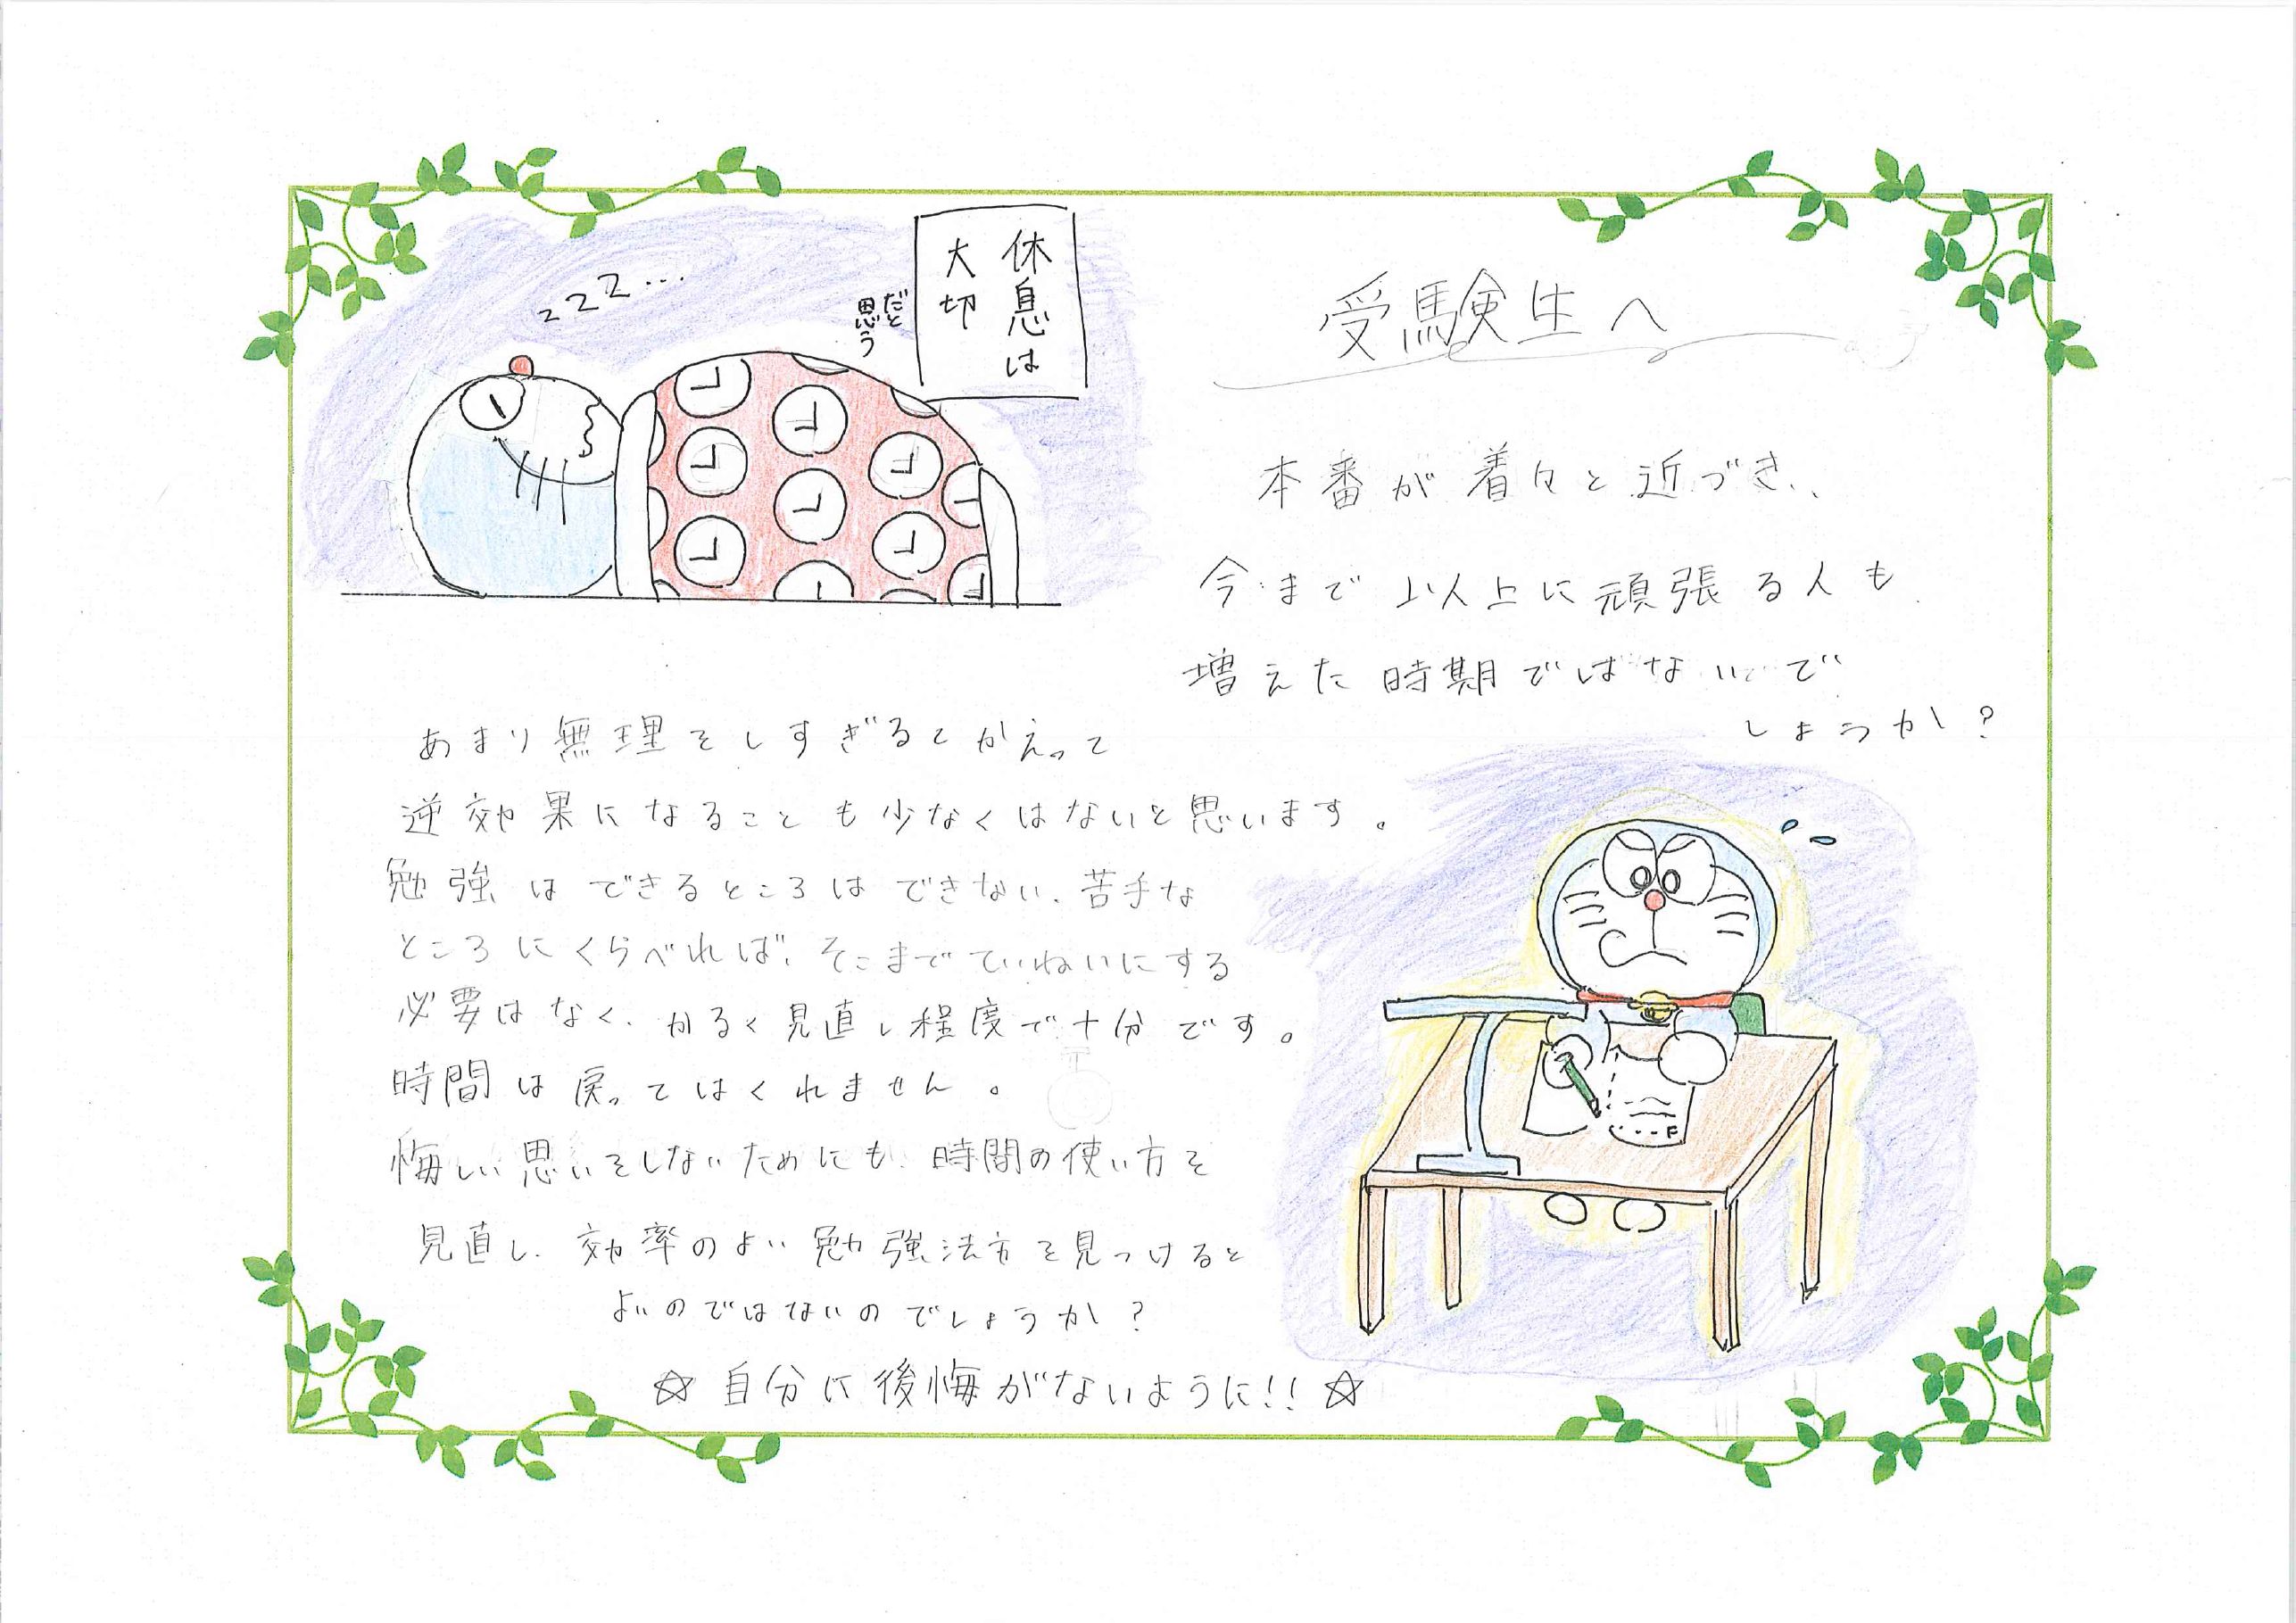 受験生へ
本番が着々と近づき、
今まで以上に頑張る人も
増えた時期ではないで
しょうか?
zzz…
休息は
大切
だと
思う
あまり無理をしすぎるとかえって
逆効果になることも少なくはないと思います。
勉強はできるところはできない、苦手な
ところにくらべれば、そこまでていねいにする
必要はなく、かるく見直し程度で十分です。
時間は戻ってはくれません。
悔しい思いをしないためにも、時間の使い方を
見直し、効率のよい勉強法方を見つけると
よいのではないのでしょうか?
☆自分に後悔がないように!!☆